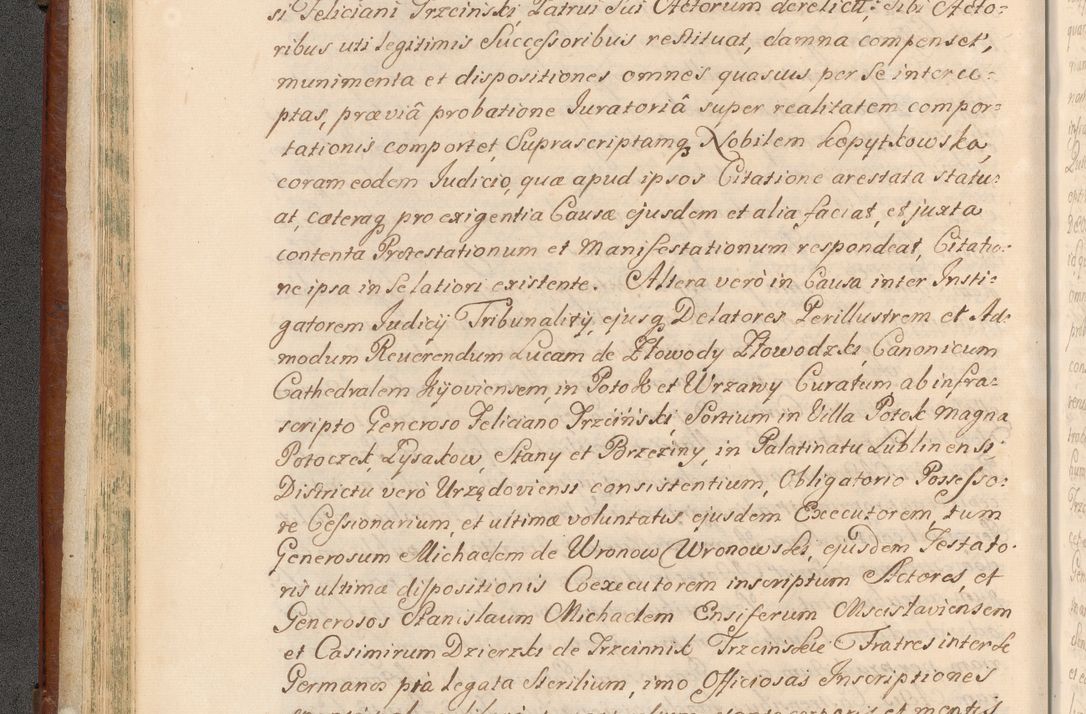 si Feliciani Trzcinski, Patrui sui Actorum derelicti; sibi Acto:
ribus uti legitimis Successoribus restituat, damna compenset,
munimenta et dispositiones omnes quasvis per se interce:
ptas, præviâ probatione Juratoriâ super realitatem compor:
tationis comportet, Suprascriptamq Nobilem Kopytkowska,
coram eodem Judicio, quæ apud ipsos Citatione arestata statu:
at, cæteraq pro exigentia Causæ ejusdem et alia faciat, et juxta
contenta Protestationum et Manifestationum respondeat, Citatio:
ne ipsa in se latiori existente. Altera verò in Causa inter Insti:
gatorem Judicij Tribunalitij, ejusq Delatores Perillustrem et Ad:
modum Reverendum Lucam de Złowody Złowodzki Canonicum
Cathedralem Kijoviensem, in Potok et Wrzawy Curatum ab infra:
scripto Generoso Feliciano Trzciński, Sortium in Villa Potok magna
Potoczek, Łysakow, Stany et Brzeziny, in Palatinatu Lublinensi,
Districtu verò Urzędoviensi consistentium, Obligatorio Possesso:
re Cessionarium, et ultimæ voluntatis ejusdem Executorem, tum
Generosum Michaelem de Wronow Wronowski, ejusdem Testato:
ris ultimæ dispositionis Coexecutorem inscriptum Actores, et
Generosos Stanislaum Michaelem Ensiferum Mscislaviensem
et Casimirum Dzierzki de Trzcinnik Trzcinskie Fratres inter se
Germanos pia legata Sterilium, imo Officiosas Inscriptiones